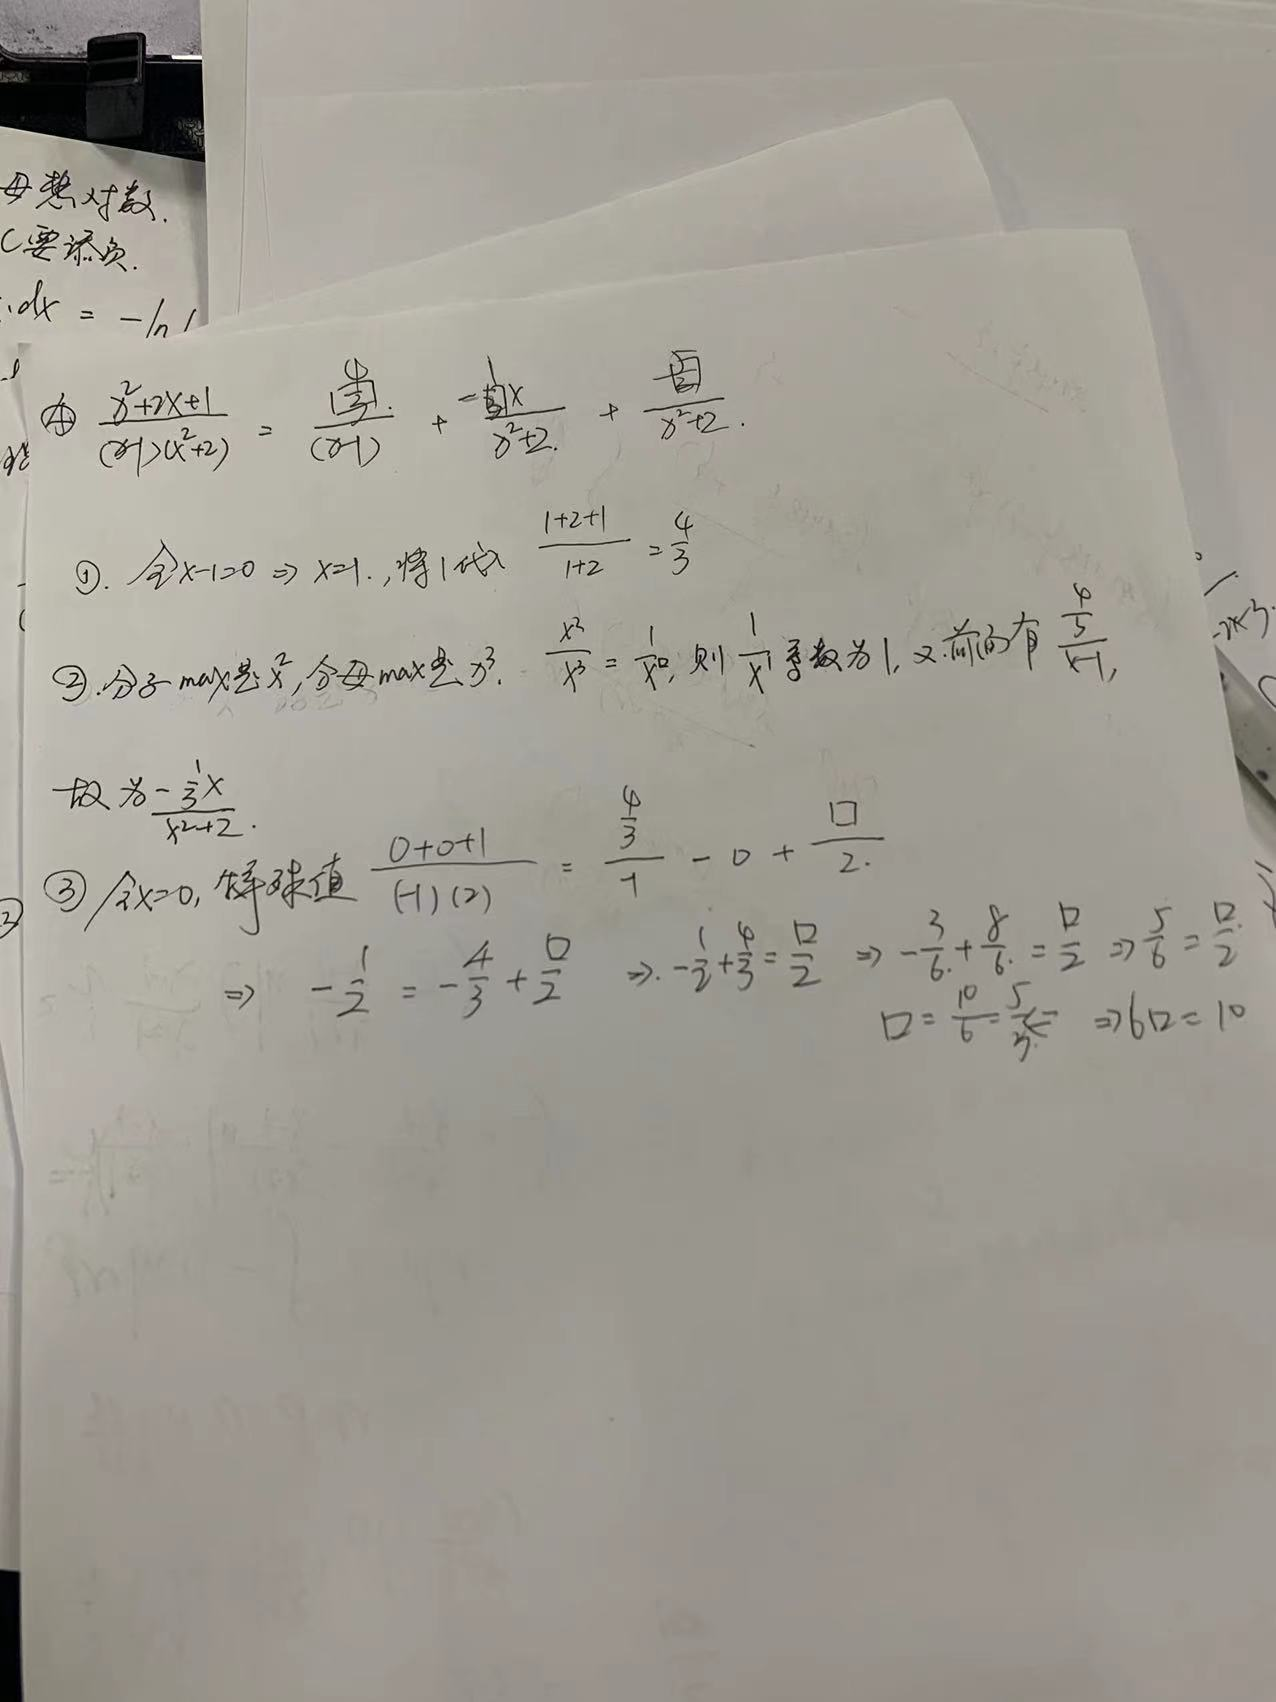 母想对数.
C要添负.
·dx = -ln
④ (x²+2x+1)/((x-1)(x²+2)) = (4/3)/(x-1) + (-1/3 x)/(x²+2) + (5/3)/(x²+2).
①. 令x-1=0 ⇒ x=1., 将1代入 (1+2+1)/(1+2) = 4/3
②.分子max是x²,分母max是x³. x²/x³ = 1/x, 则 1/x¹ 系数为1, 又.前的有 (4/3)/(x-1),
故为 (-1/3 x)/(x²+2).
③ 令x=0, 特殊值 (0+0+1)/((-1)(2)) = (4/3)/(-1) - 0 + □/2.
⇒ -1/2 = -4/3 + □/2 ⇒. -1/2 + 4/3 = □/2 ⇒ -3/6. + 8/6. = □/2 ⇒ 5/6 = □/2
□ = 10/6 = 5/3. ⇐ ⇒ 6□ = 10